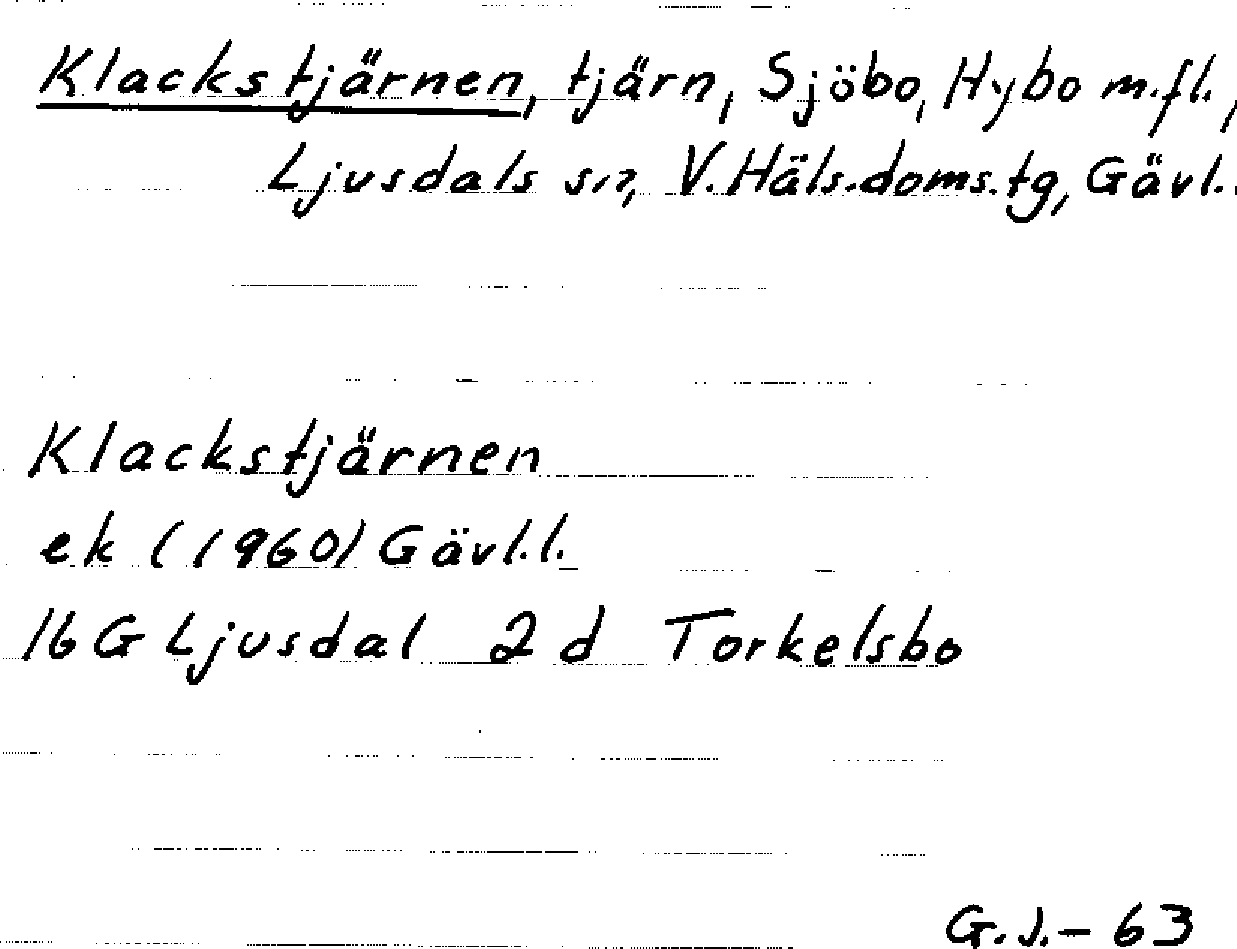 Klackstjärnen, tjärn, Sjöbo, Hybo m.fl.,
Ljusdals sn, V. Häls. doms. tg, Gävl.
Klackstjärnen
ek (1960) Gävl.l.
16G Ljusdal 2 d Torkelsbo
G.J.-63